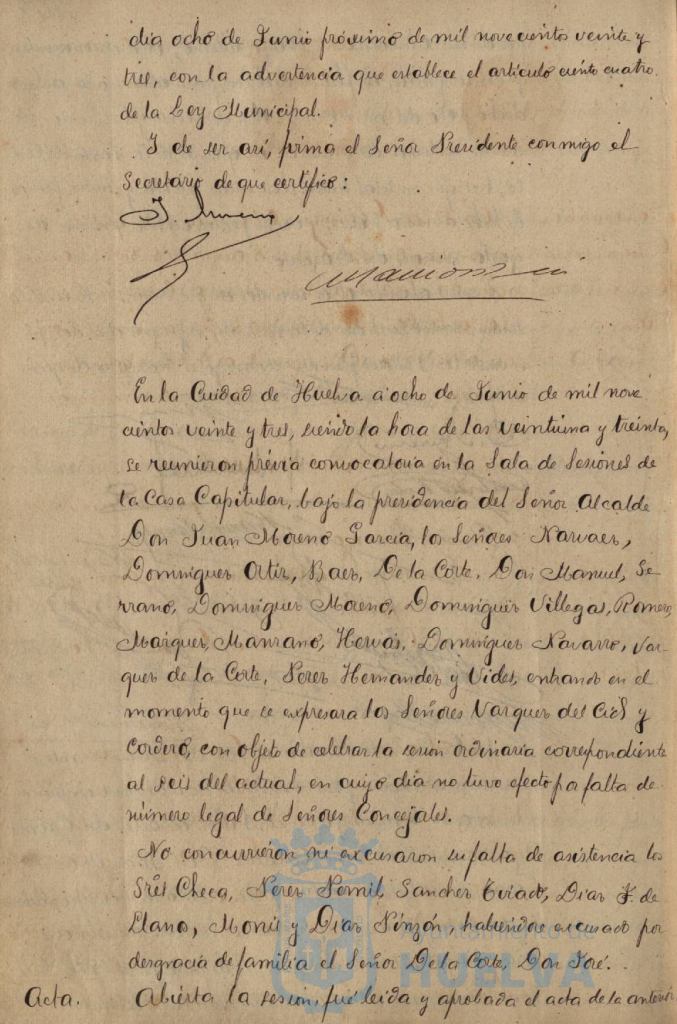 dia ocho de Junio próximo de mil novecientos veinte y
tres, con la advertencia que establece el artículo ciento cuatro
de la Ley Municipal.
Y de ser así, firma el Señor Presidente conmigo el
Secretario de que certifico:
J. Moreno
En la Ciudad de Huelva a ocho de Junio de mil nove
cientos veinte y tres, siendo la hora de las veintiuna y treinta,
se reunieron prévia convocatoria en la Sala de Sesiones de
la Casa Capitular, bajo la presidencia del Señor Alcalde
Don Juan Moreno García, los Señores Narvaes,
Domingues Ortiz, Baes, De la Corte, Don Manuel, Se
rrano, Domingues Moreno, Domingues Villegas, Romero,
Marques, Manzano, Hervás, Domingues Navarro, Vaz
ques de la Corte, Peres Hernandes y Vides, entrando en el
momento que se expresara los Señores Vazques del Cid y
Cordero, con objeto de celebrar la sesión ordinaria correspondiente
al seis del actual, en cuyo dia no tuvo efecto por falta de
número legal de Señores Concejales.
No concurrieron ni excusaron su falta de asistencia los
Sres Checa, Peres Pernil, Sanches Diaz F. de
Llano, Monis y Dias Pinzón, habiendose excusado por
desgracia de familia el Señor De la Corte, Don José.
Acta. Abierta la sesión, fué leida y aprobada el acta de la anterior
HUELVA